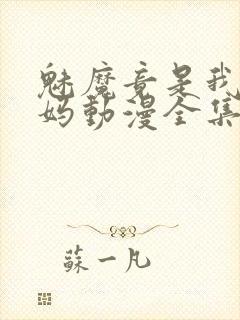 魅魔竟是我
妈動漫全集
蘇一凡